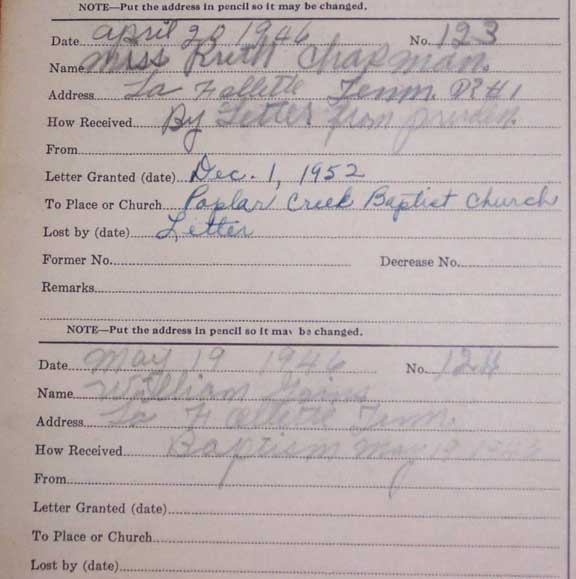 NOTE—Put the address in pencil so it may be changed.
Date April 20 1946 No. 123
Name Miss Ruth Chapman.
Address La Follette Tenn. R#1
How Received By Letter from
From
Letter Granted (date) Dec. 1, 1952
To Place or Church Poplar Creek Baptist Church
Lost by (date) Letter
Former No. Decrease No.
Remarks
NOTE—Put the address in pencil so it may be changed.
Date May 19 1946 No. 124
Name William
Address La Follette Tenn.
How Received Baptism May 19 1946
From
Letter Granted (date)
To Place or Church
Lost by (date)